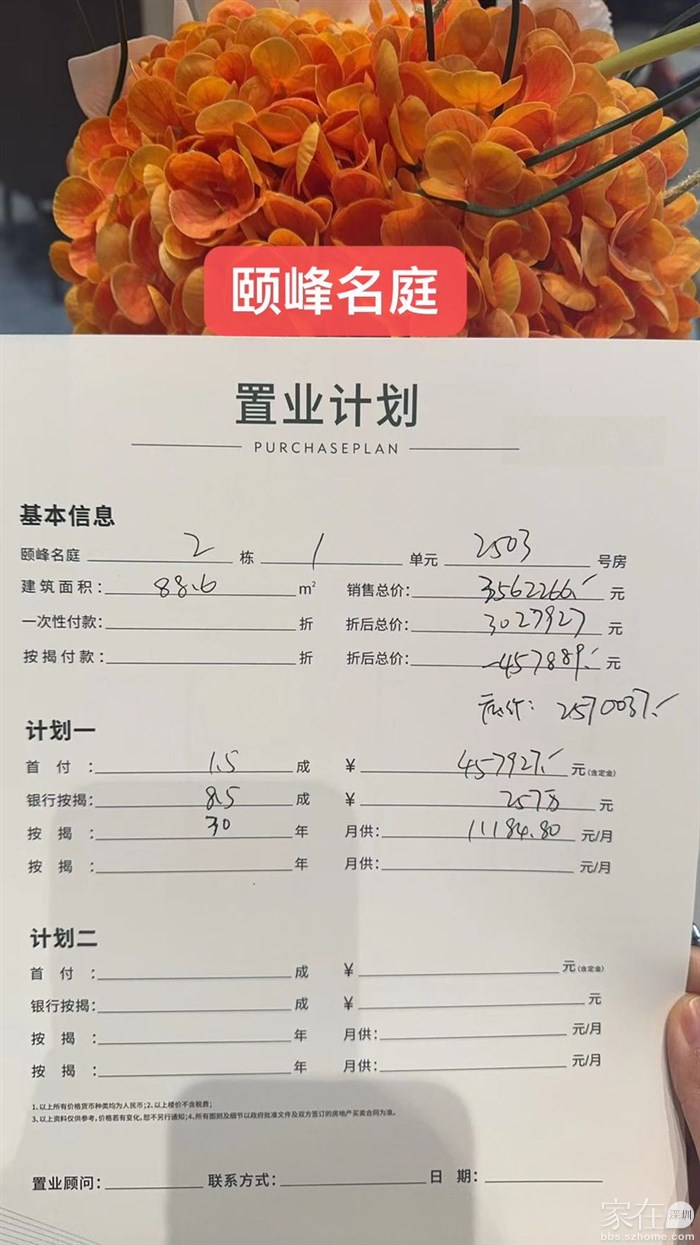 颐峰名庭
置业计划
PURCHASEPLAN
基本信息
颐峰名庭 2 栋 1 单元 2503 号房
建筑面积: 88.6 m² 销售总价: 3562266.- 元
一次性付款: 折 折后总价: 3027927 元
按揭付款: 折 折后总价: -457889.- 元
2570037.-
计划一
首付: 1.5 成 ¥ 457927.- 元(含定金)
银行按揭: 8.5 成 ¥ 257万 元
按揭: 30 年 月供: 11184.80 元/月
按揭: 年 月供: 元/月
计划二
首付: 成 ¥ 元(含定金)
银行按揭: 成 ¥ 元
按揭: 年 月供: 元/月
按揭: 年 月供: 元/月
1.以上所有价格货币种类均为人民币;2.以上楼价不含税费;
3.以上资料仅供参考,价格若有变化,恕不另行通知;4.所有图则及细节以政府批准文件及双方签订的房地产买卖合同为准。
置业顾问: 联系方式: 日期:
家在深圳
bbs.szhome.com